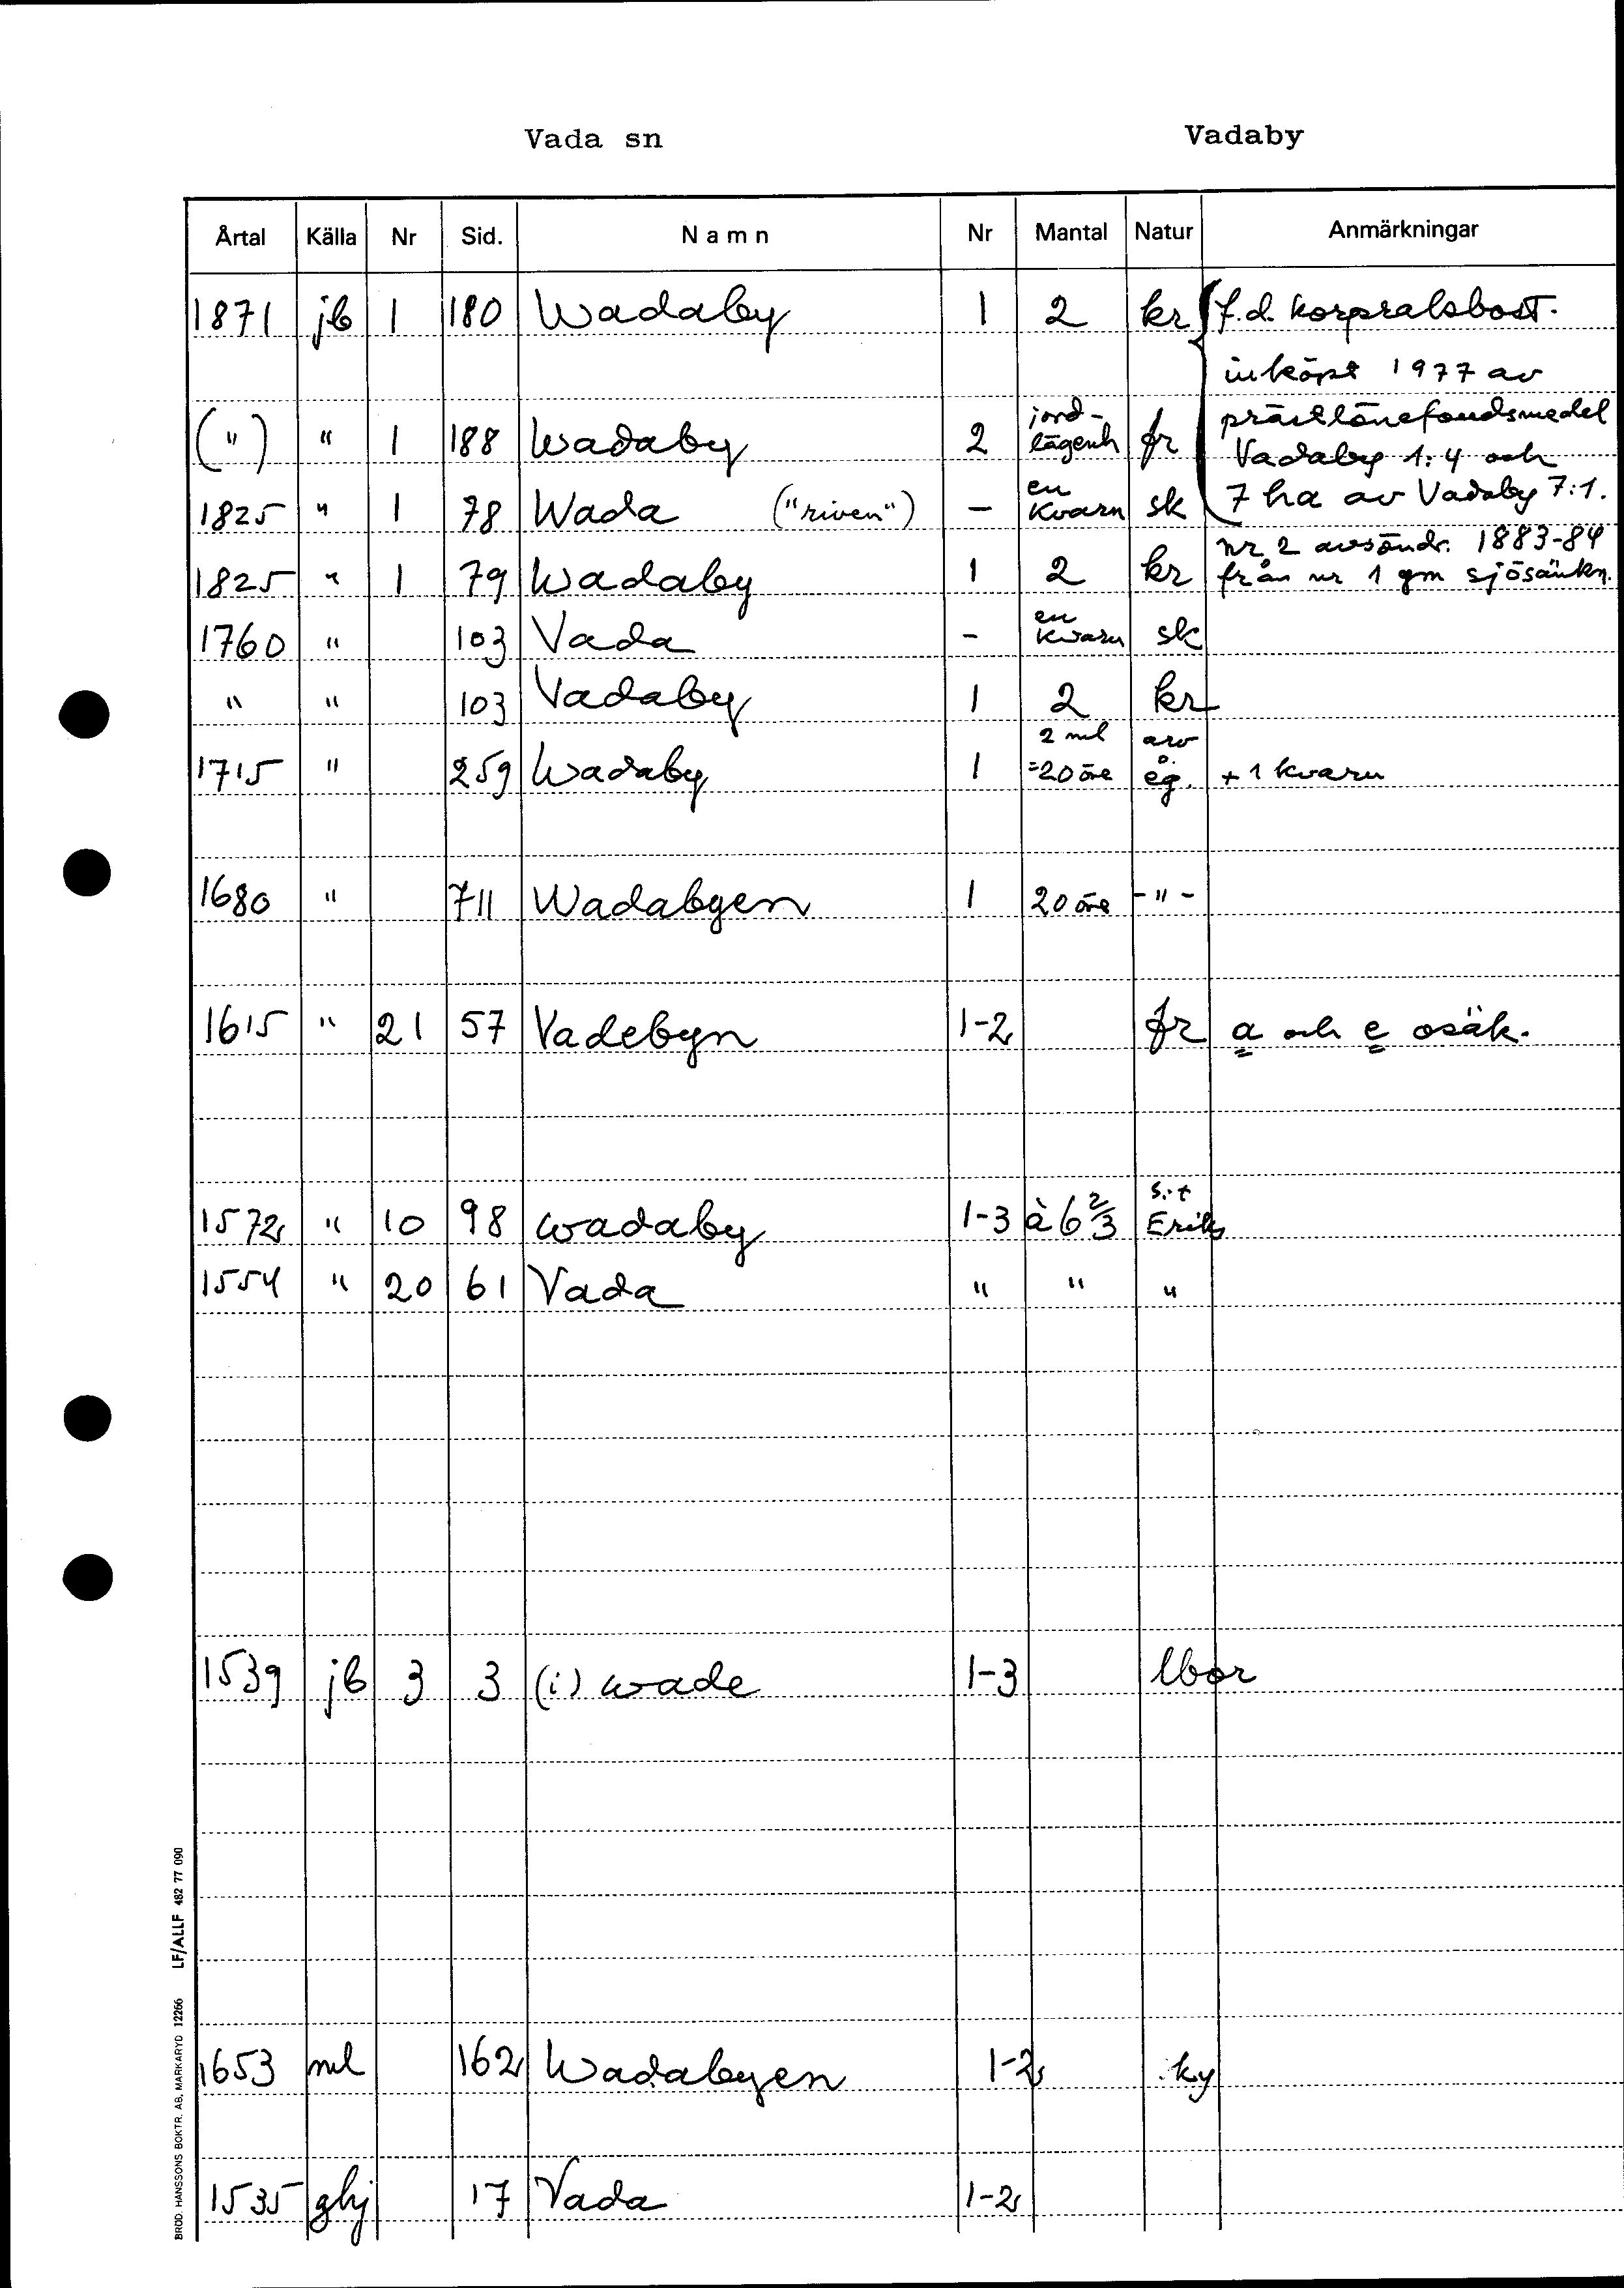 Vada sn Vadaby
Årtal Källa Nr Sid. Namn Nr Mantal Natur Anmärkningar
1871 jb 1 180 Wadaby 1 2 kr f.d. korpralsbost.
inköpt 1977 av
(") " 1 188 Wadaby 2 jord-lägenh fr prästlönefondsmedel
Vadaby 1:4 och
1825 " 1 78 Wada ("riven") - en kvarn sk 7 ha av Vadaby 7:1.
nr 2 avsöndr. 1883-84
1825 " 1 79 Wadaby 1 2 kr från nr 1 gm sjösänkn.
1760 " 103 Vada - en kvarn sk
" " 103 Vadaby 1 2 kr
1715 " 259 Wadaby 1 2 ml =20 öre arv o. eg. + 1 kvarn
1680 " 711 Wadabyen 1 20 öre -"-
1615 " 21 57 Vadebyn 1-2 fr a och e osäk.
1572 " 10 98 wadaby 1-3 à 6 2/3 S:t Eriks
1554 " 20 61 Vada " " "
1539 jb 3 3 (i) wade 1-3 lbor
1653 ml 162 Wadabyen 1-2 ky
1535 ghj 17 Vada 1-2
BRÖD. HANSSONS BOKTR. AB, MARKARYD 12266 LF/ALLF 482 77 090